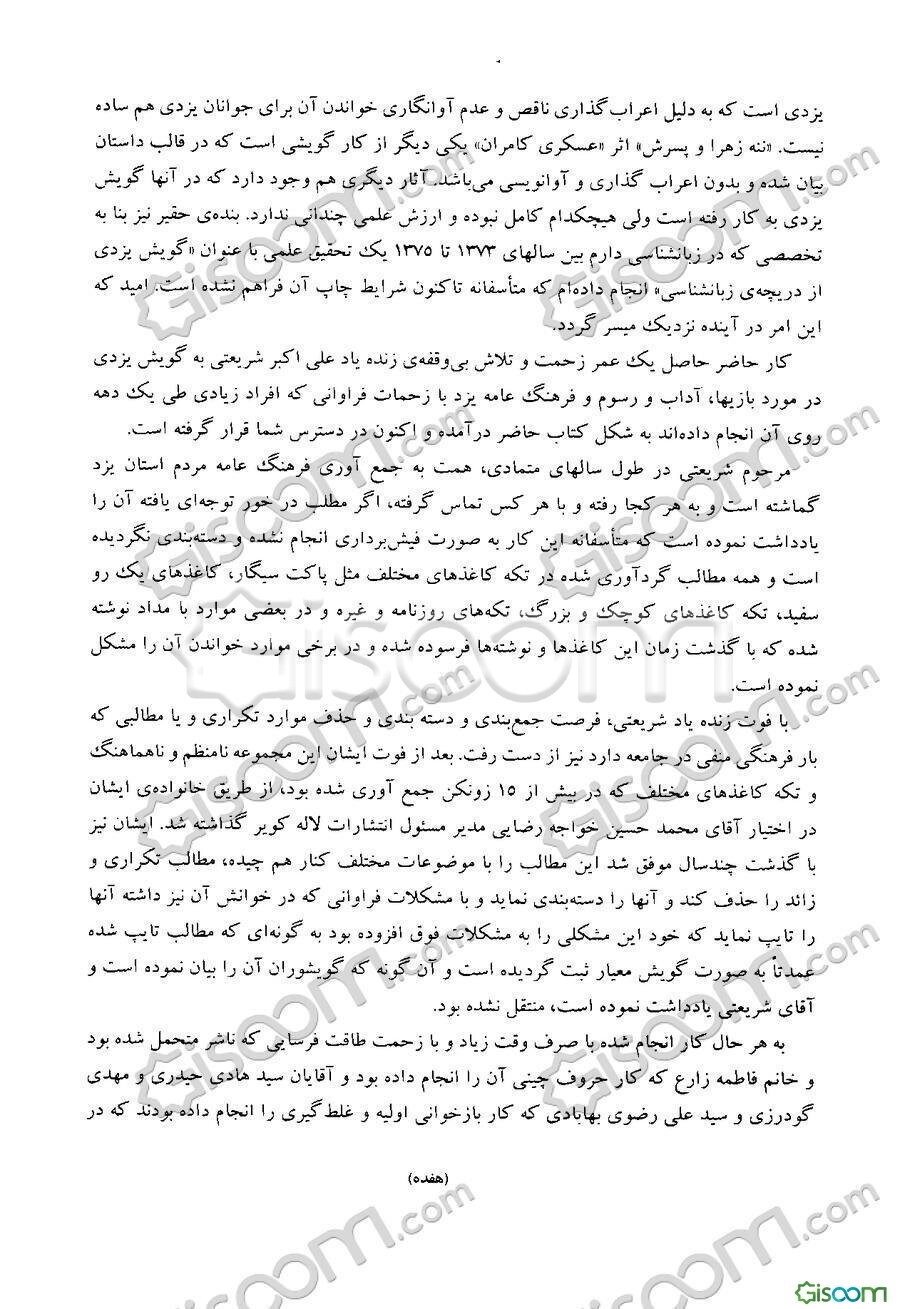 یزدی است که به دلیل اعراب‌گذاری ناقص و عدم آوانگاری خواندن آن برای جوانان یزدی هم ساده
نیست. «ننه زهرا و پسرش» اثر «عسکری کامران» یکی دیگر از کار گویشی است که در قالب داستان
بیان شده و بدون اعراب گذاری و آوانویسی می‌باشد. آثار دیگری هم وجود دارد که در آنها گویش
یزدی به کار رفته است ولی هیچکدام کامل نبوده و ارزش علمی چندانی ندارد. بنده‌ی حقیر نیز بنا به
تخصصی که در زبانشناسی دارم بین سالهای ۱۳۷۳ تا ۱۳۷۵ یک تحقیق علمی با عنوان «گویش یزدی
از دریچه‌ی زبانشناسی» انجام داده‌ام که متأسفانه تاکنون شرایط چاپ آن فراهم نشده است. امید که
این امر در آینده نزدیک میسر گردد.
کار حاضر حاصل یک عمر زحمت و تلاش بی‌وقفه‌ی زنده یاد علی اکبر شریعتی به گویش یزدی
در مورد بازیها، آداب و رسوم و فرهنگ عامه یزد با زحمات فراوانی که افراد زیادی طی یک دهه
روی آن انجام داده‌اند به شکل کتاب حاضر درآمده و اکنون در دسترس شما قرار گرفته است.
مرحوم شریعتی در طول سالهای متمادی، همت به جمع آوری فرهنگ عامه مردم استان یزد
گماشته است و به هر کجا رفته و با هر کس تماس گرفته، اگر مطلب در خور توجه‌ای یافته آن را
یادداشت نموده است که متأسفانه این کار به صورت فیش‌برداری انجام نشده و دسته‌بندی نگردیده
است و همه مطالب گردآوری شده در تکه کاغذهای مختلف مثل پاکت سیگار، کاغذهای یک رو
سفید، تکه کاغذهای کوچک و بزرگ، تکه‌های روزنامه و غیره و در بعضی موارد با مداد نوشته
شده که با گذشت زمان این کاغذها و نوشته‌ها فرسوده شده و در برخی موارد خواندن آن را مشکل
نموده است.
با فوت زنده یاد شریعتی، فرصت جمع‌بندی و دسته بندی و حذف موارد تکراری و یا مطالبی که
بار فرهنگی منفی در جامعه دارد نیز از دست رفت. بعد از فوت ایشان این مجموعه نامنظم و ناهماهنگ
و تکه کاغذهای مختلف که در بیش از ۱۵ زونکن جمع آوری شده بود، از طریق خانواده‌ی ایشان
در اختیار آقای محمد حسین خواجه رضایی مدیر مسئول انتشارات لاله کویر گذاشته شد. ایشان نیز
با گذشت چندسال موفق شد این مطالب را با موضوعات مختلف کنار هم چیده، مطالب تکراری و
زائد را حذف کند و آنها را دسته‌بندی نماید و با مشکلات فراوانی که در خوانش آن نیز داشته آنها
را تایپ نماید که خود این مشکلی را به مشکلات فوق افزوده بود به گونه‌ای که مطالب تایپ شده
عمدتاً به صورت گویش معیار ثبت گردیده است و آن گونه که گویشوران آن را بیان نموده است و
آقای شریعتی یادداشت نموده است، منتقل نشده بود.
به هر حال کار انجام شده با صرف وقت زیاد و با زحمت طاقت فرسایی که ناشر متحمل شده بود
و خانم فاطمه زارع که کار حروف چینی آن را انجام داده بود و آقایان سید هادی حیدری و مهدی
گودرزی و سید علی رضوی بهابادی که کار بازخوانی اولیه و غلط‌گیری را انجام داده بودند که در
(هفده)
Gisoom